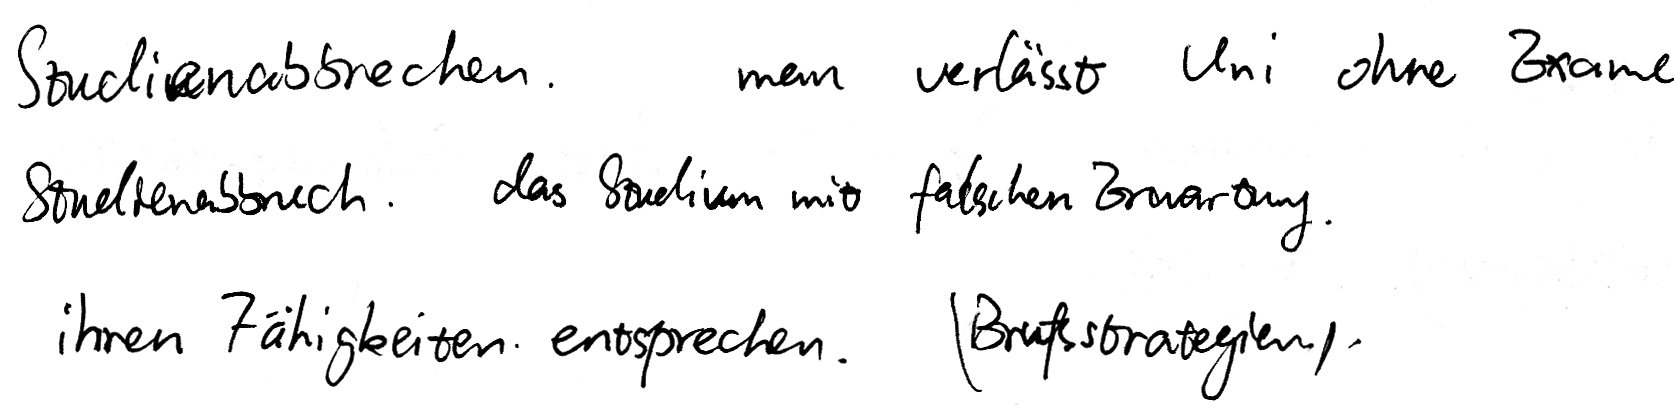 Studienabbrechen. man verlässt Uni ohne Exame
Studienabbruch. das Studium mit falschen Erwartung.
ihren Fähigkeiten entsprechen. (Brufsstrategien).